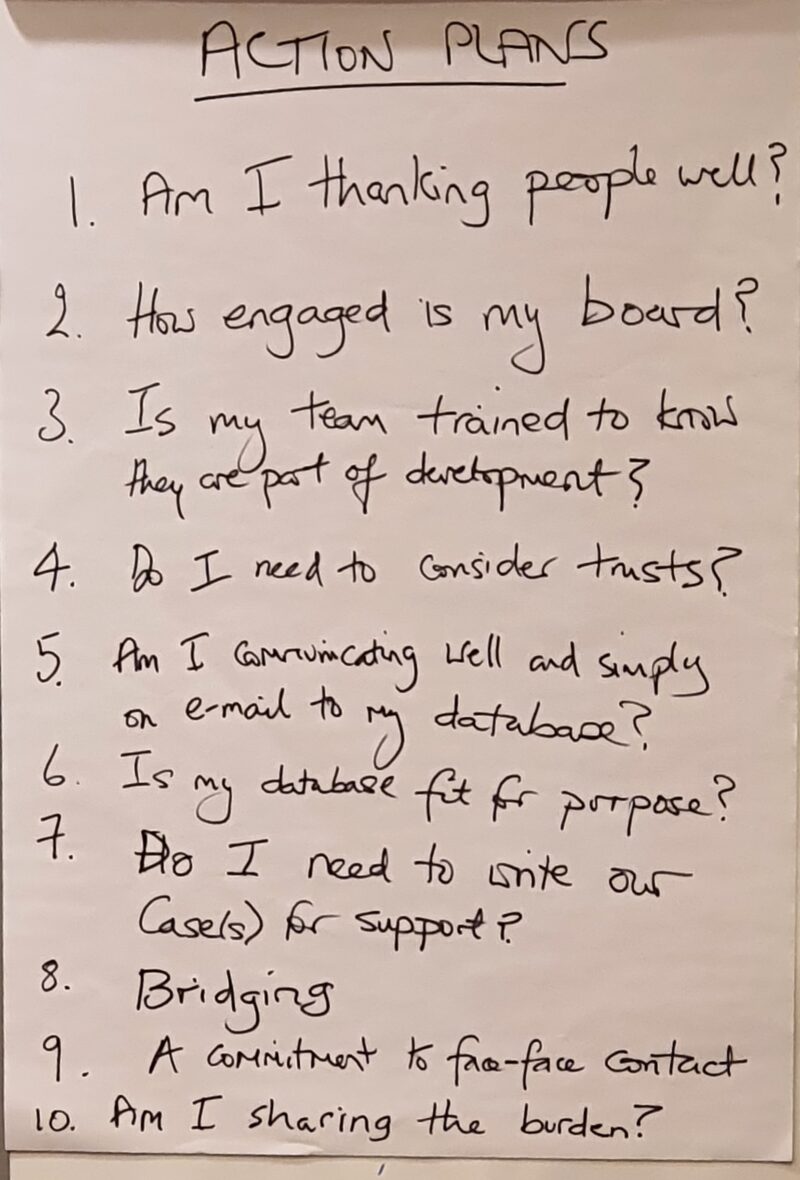 ACTION PLANS
1. Am I thanking people well?
2. How engaged is my board?
3. Is my team trained to know
they are part of development?
4. Do I need to consider trusts?
5. Am I communicating well and simply
on e-mail to my database?
6. Is my database fit for purpose?
7. Do I need to write our
Case(s) for support?
8. Bridging
9. A commitment to face-face contact
10. Am I sharing the burden?